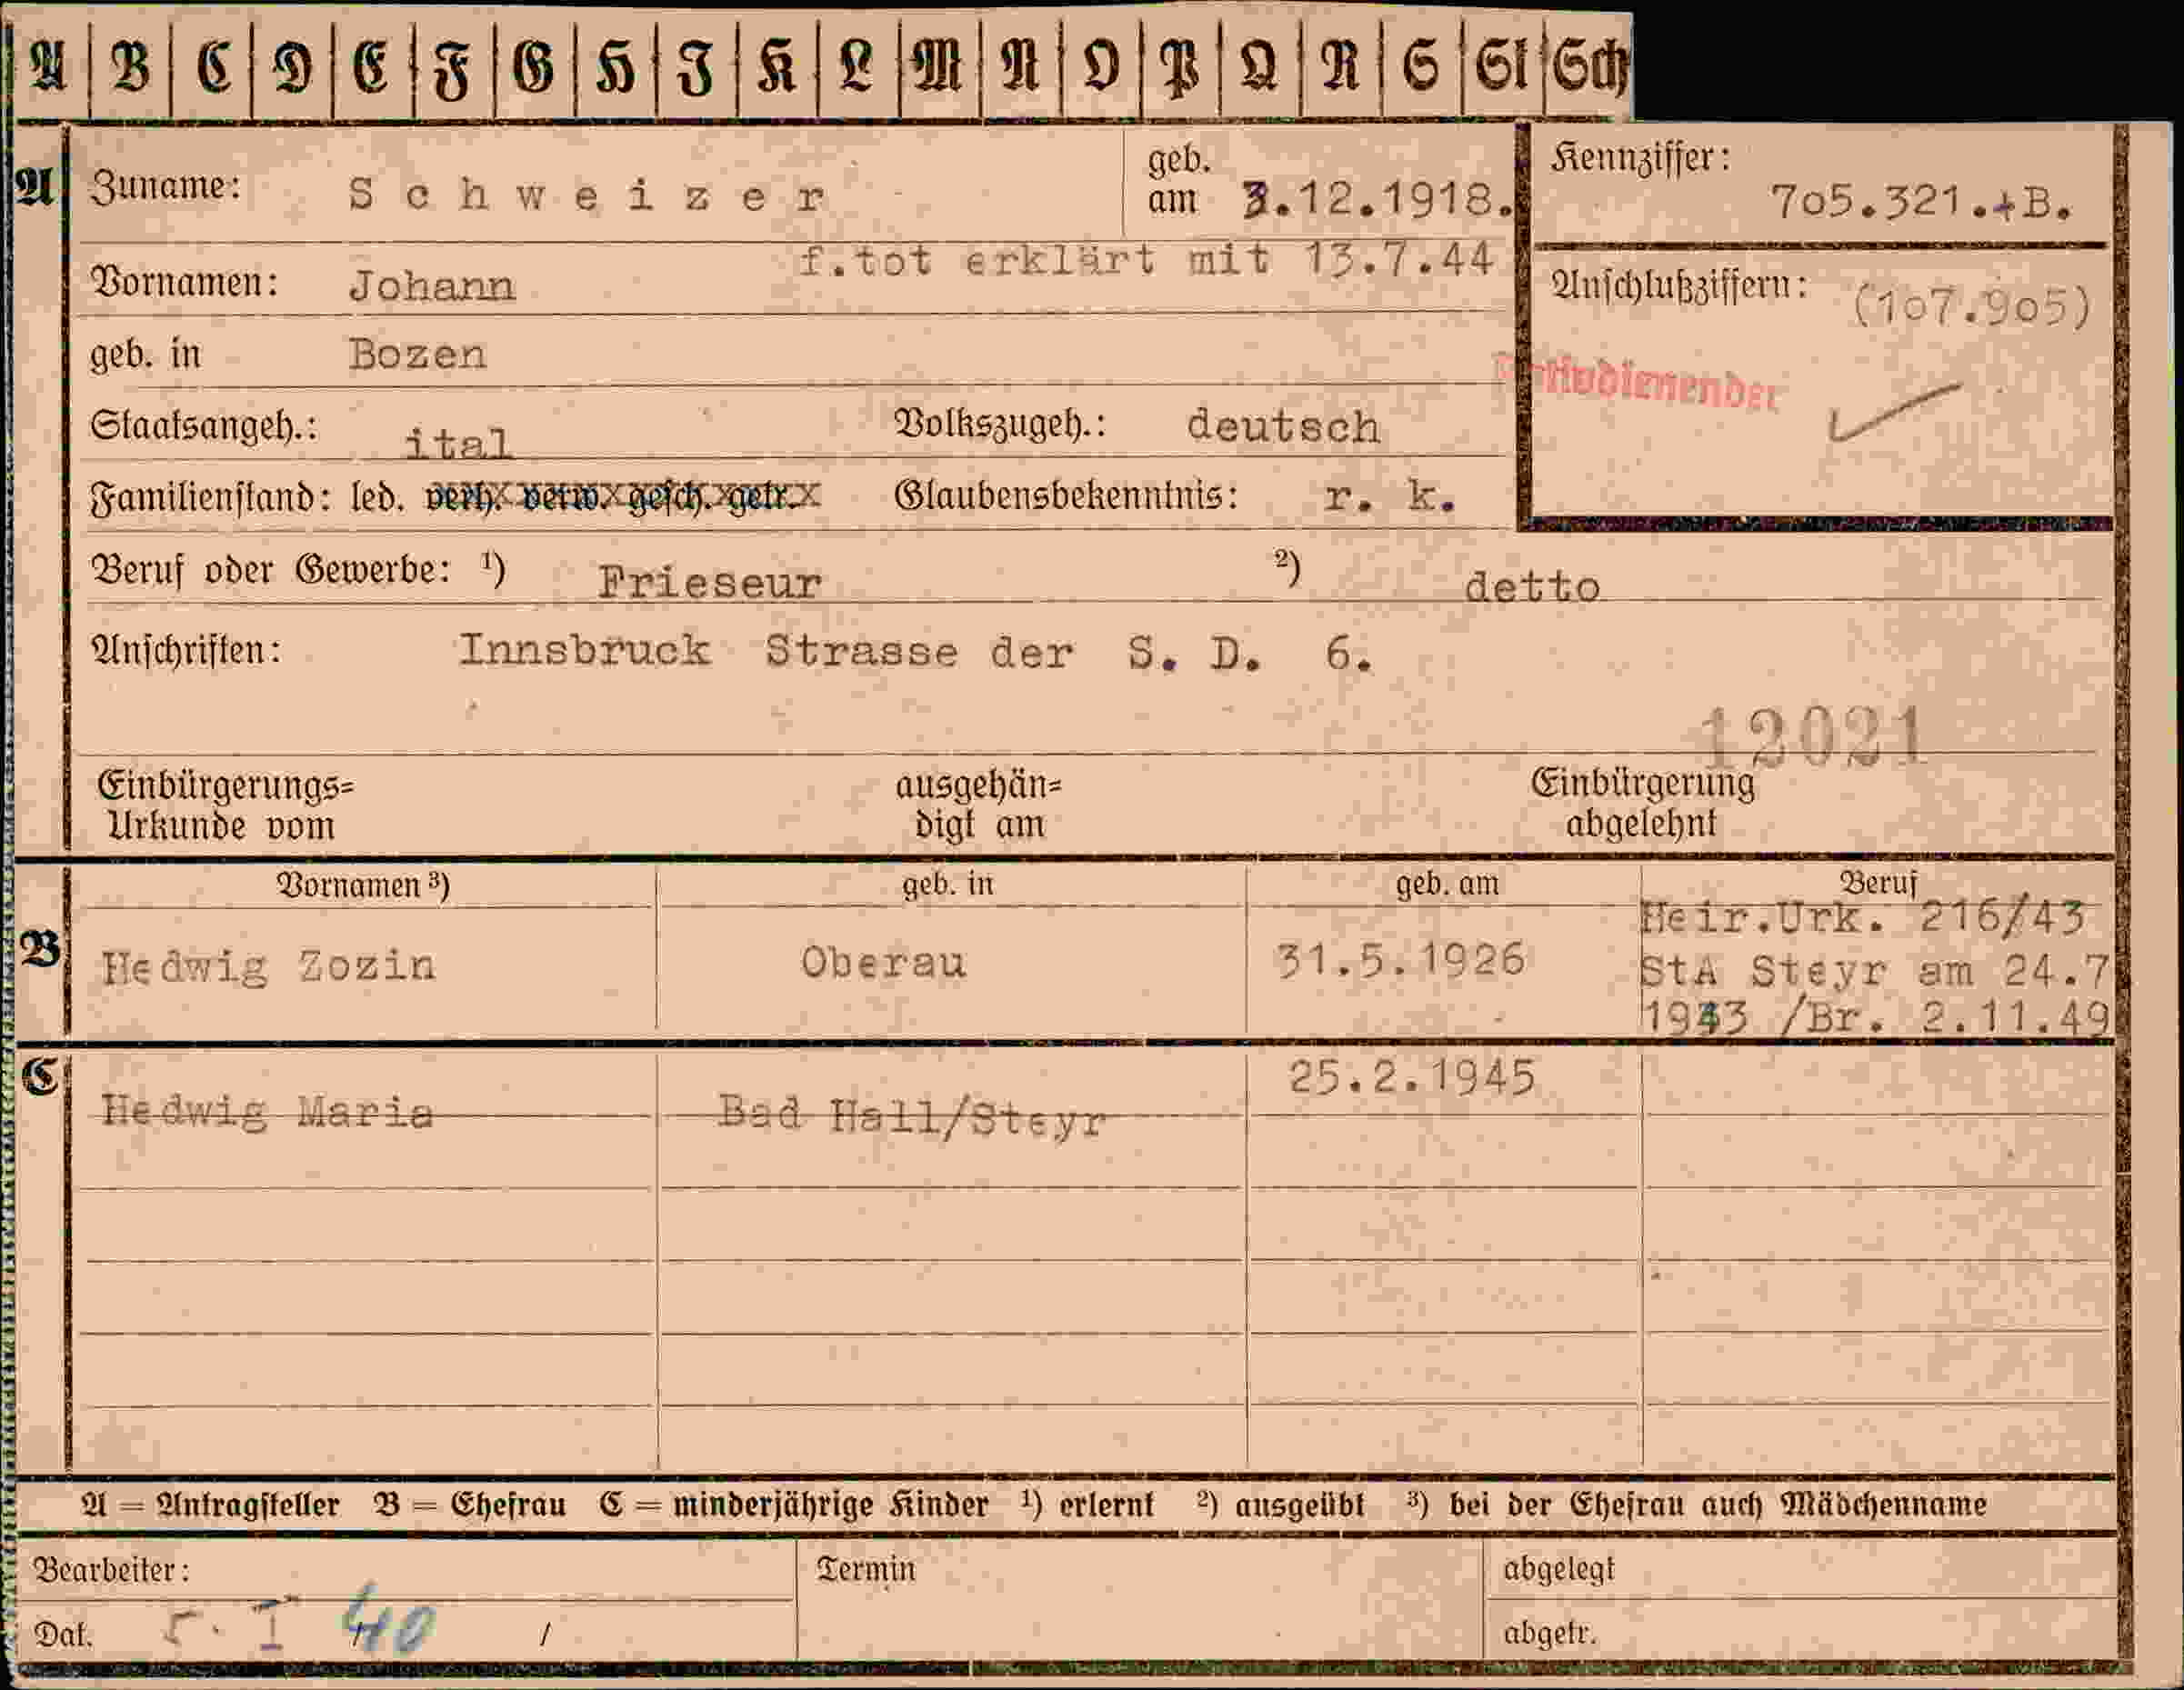 A B C D E F G H I K L M N O P Q R S St Sch
A Zuname: Schweizer geb. am 3.12.1918. Kennziffer: 705.321.+B.
f.tot erklärt mit 13.7.44
Vornamen: Johann Anschlußziffern: (107.905)
geb. in Bozen
Staatsangeh.: ital Volkszugeh.: deutsch
Familienstand: led. verh. verw. gesch. getr. Glaubensbekenntnis: r. k.
Beruf oder Gewerbe: ¹) Frieseur ²) detto
Anschriften: Innsbruck Strasse der S. D. 6.
12021
Einbürgerungs= ausgehän= Einbürgerung
Urkunde vom digt am abgelehnt
Vornamen ³) geb. in geb. am Beruf
Heir.Urk. 216/43
B Hedwig Zozin Oberau 31.5.1926 StA Steyr am 24.7
1943 /Br. 2.11.49
C Hedwig Maria Bad Hall/Steyr 25.2.1945
A = Antragsteller B = Ehefrau C = minderjährige Kinder ¹) erlernt ²) ausgeübt ³) bei der Ehefrau auch Mädchenname
Bearbeiter: Termin abgelegt
Dat. 5. I 40 / abgetr.